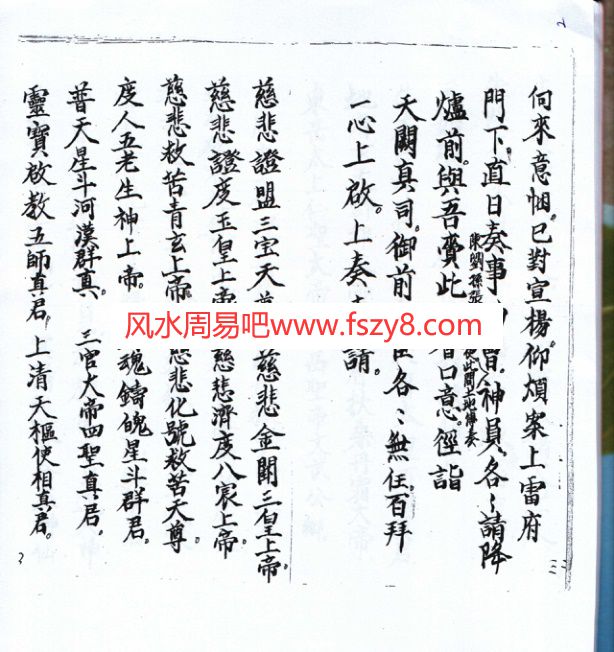 向來意悃。已對宣楊。仰煩案上雷府
門下。直日奏事 神員。各〻請降
陳劉孫張 此間土地傳奏
爐前。與吾賫此 口意。徑詣
天闕真司。御前 各〻無任。百拜
一心上啟。上奏 請。
慈悲證盟三宝天 慈悲金闕三皇上帝。
慈悲證度玉皇上帝 慈悲濟度八宸上帝。
慈悲救苦青玄上帝 悲化號救苦天尊。
度人五老生神上帝。 魂鑄魄星斗群君。
普天星斗河漢群真。三官大帝四聖真君。
靈寶啟教五師真君。上清天樞使相真君。
风水周易吧www.fszy8.com